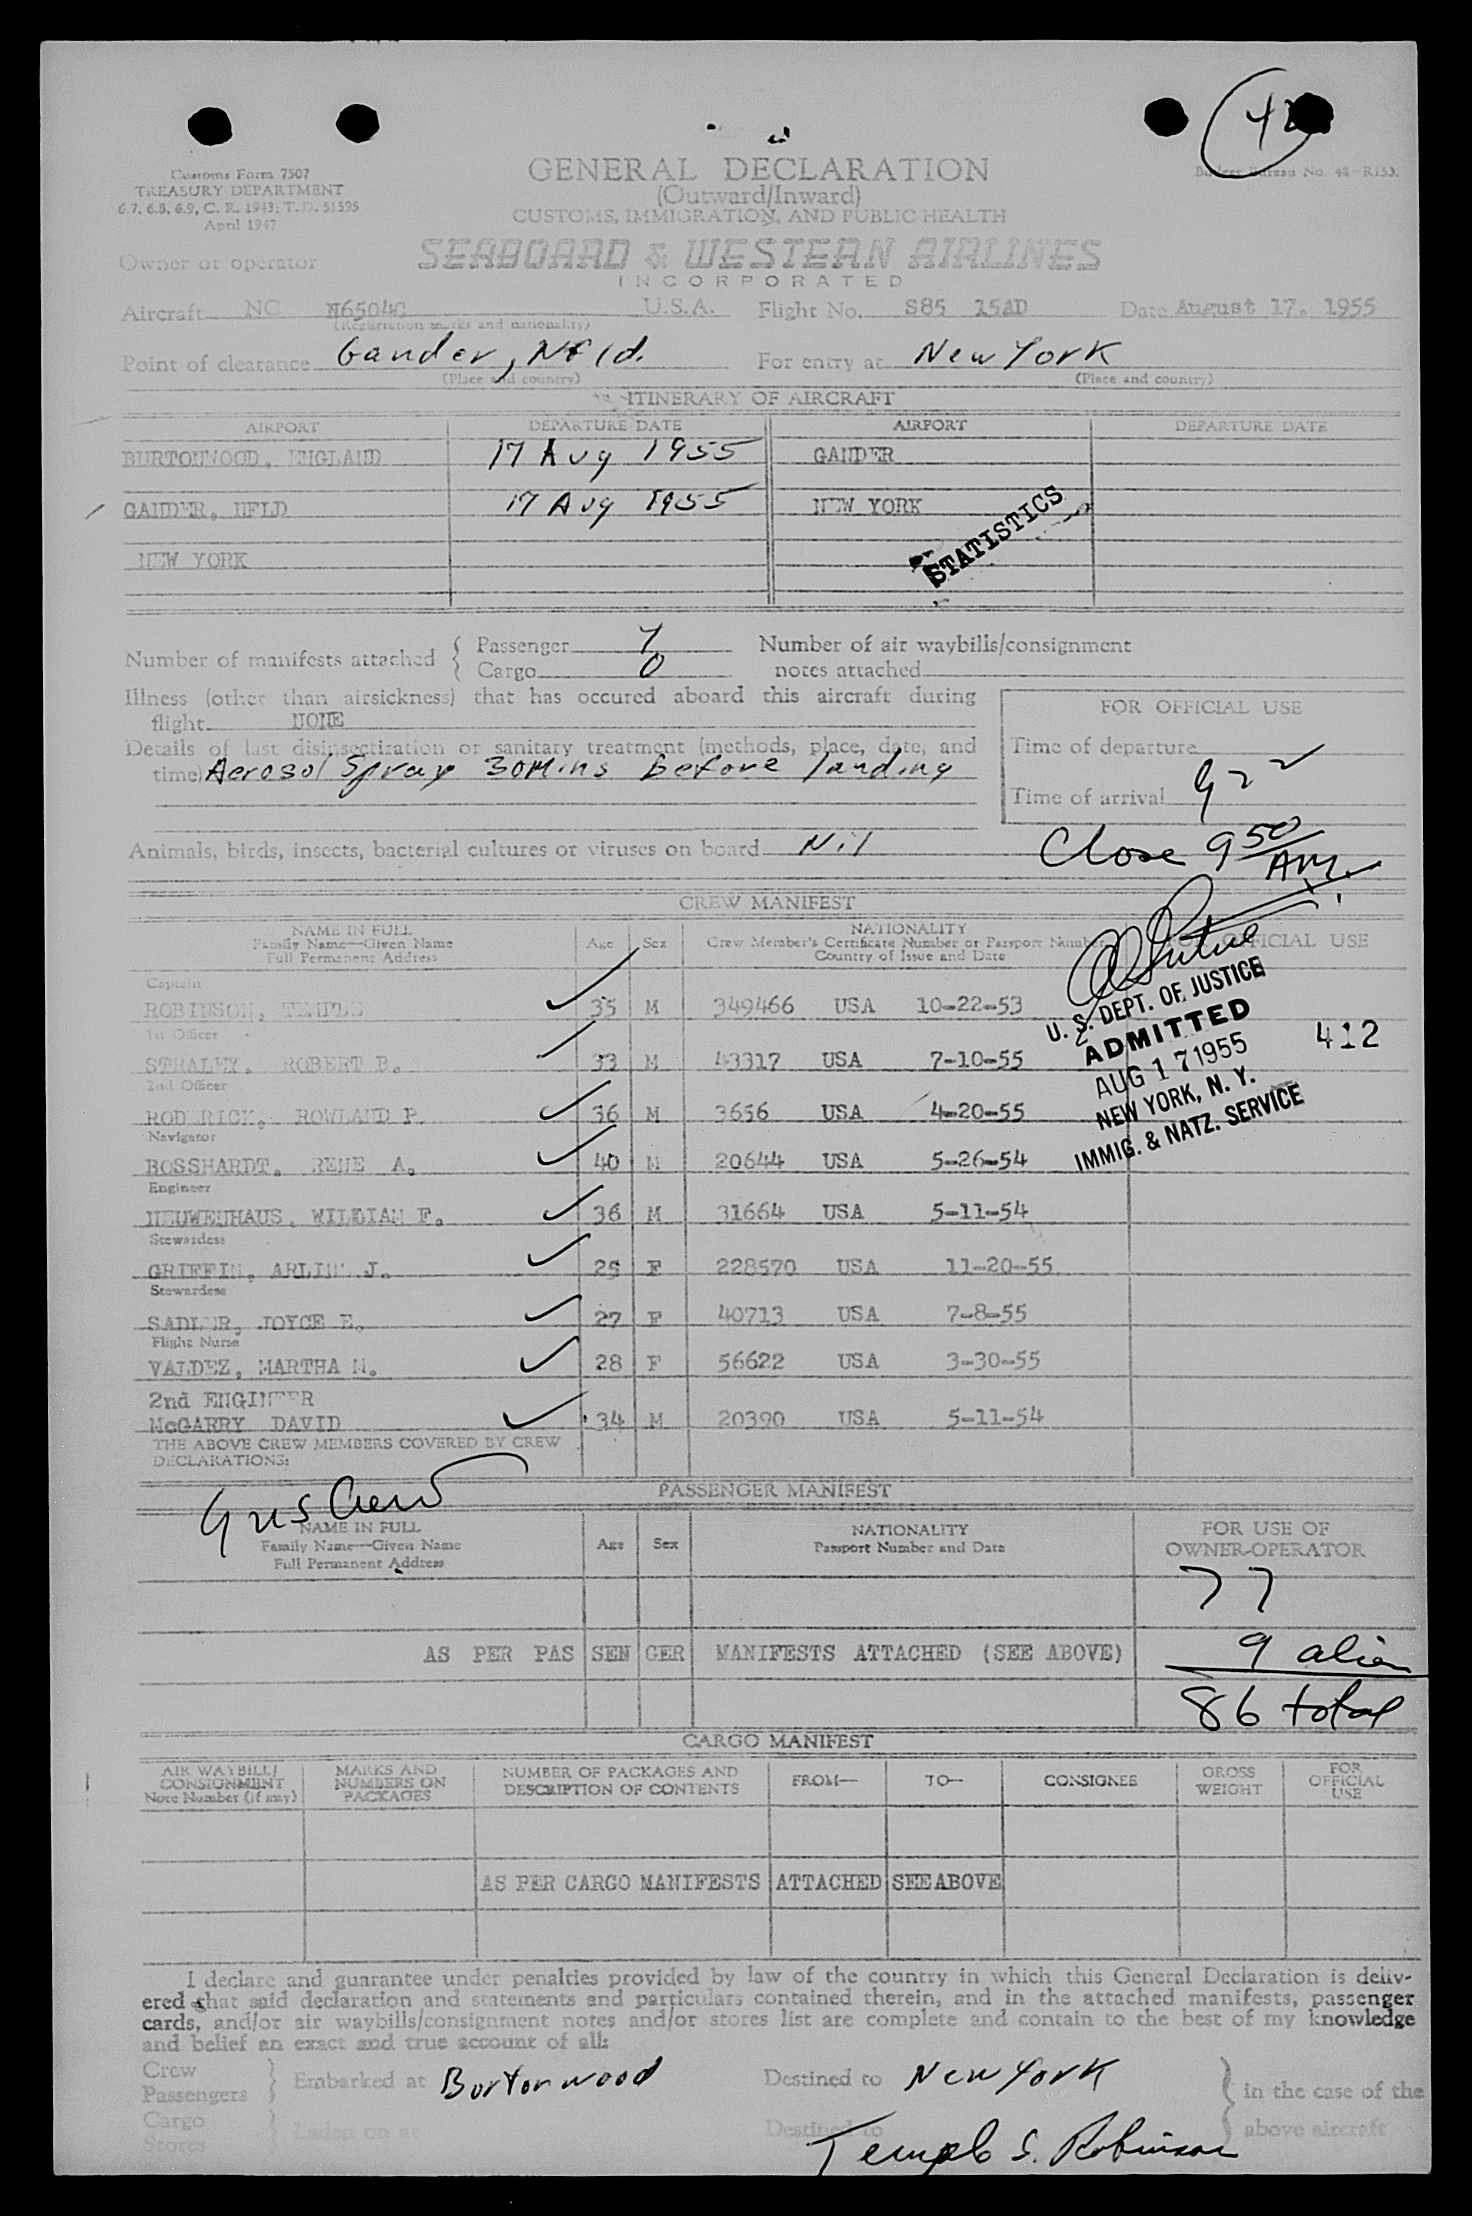 42
Customs Form 7507
TREASURY DEPARTMENT
6.7, 6.8, 6.9, C. R. 1943; T. D. 51595
April 1947
Budget Bureau No. 48-R153.
GENERAL DECLARATION
(Outward/Inward)
CUSTOMS, IMMIGRATION, AND PUBLIC HEALTH
Owner or operator SEABOARD & WESTERN AIRLINES
INCORPORATED
Aircraft NC N6504C U.S.A. Flight No. S85 15AD Date August 17, 1955
(Registration marks and nationality)
Point of clearance Gander, Nfld. For entry at New York
(Place and country) (Place and country)
ITINERARY OF AIRCRAFT
AIRPORT DEPARTURE DATE AIRPORT DEPARTURE DATE
BURTONWOOD, ENGLAND 17 Aug 1955 GANDER
GANDER, NFLD 17 Aug 1955 NEW YORK
STATISTICS
NEW YORK
Number of manifests attached { Passenger 7 Number of air waybills/consignment
Cargo 0 notes attached
Illness (other than airsickness) that has occured aboard this aircraft during
flight NONE
FOR OFFICIAL USE
Details of last disinsectization or sanitary treatment (methods, place, date, and
time) Aerosol Spray 30Mins before landing
Time of departure
Time of arrival 9 22
Close 9 50 AM.
Animals, birds, insects, bacterial cultures or viruses on board Nil
CREW MANIFEST
NAME IN FULL
Family Name—Given Name
Full Permanent Address
Age Sex
NATIONALITY
Crew Member's Certificate Number or Passport Number
Country of Issue and Date
FOR OFFICIAL USE
Captain
ROBINSON, TEMPLE 35 M 349466 USA 10-22-53
1st Officer
STRALEY, ROBERT B. 33 M 43317 USA 7-10-55
2nd Officer
RODERICK, ROWLAND P. 36 M 3656 USA 4-20-55
Navigator
BOSSHARDT, RENE A. 40 M 20644 USA 5-26-54
Engineer
NEUWENHAUS, WILLIAM F. 36 M 31664 USA 5-11-54
Stewardess
GRIFFIN, ARLINE J. 25 F 228570 USA 11-20-55
Stewardess
SADLER, JOYCE E. 27 F 40713 USA 7-8-55
Flight Nurse
VALDEZ, MARTHA M. 28 F 56622 USA 3-30-55
2nd ENGINEER
McGARRY DAVID 34 M 20390 USA 5-11-54
U. S. DEPT. OF JUSTICE
ADMITTED
AUG 17 1955
NEW YORK, N. Y.
IMMIG. & NATZ. SERVICE
412
THE ABOVE CREW MEMBERS COVERED BY CREW
DECLARATIONS:
9 US Crew
PASSENGER MANIFEST
NAME IN FULL
Family Name—Given Name
Full Permanent Address
Age Sex
NATIONALITY
Passport Number and Date
FOR USE OF
OWNER-OPERATOR
77
AS PER PAS SEN GER MANIFESTS ATTACHED (SEE ABOVE) 9 alien
86 total
CARGO MANIFEST
AIR WAYBILL/
CONSIGNMENT
Note Number (if any)
MARKS AND
NUMBERS ON
PACKAGES
NUMBER OF PACKAGES AND
DESCRIPTION OF CONTENTS
FROM— TO— CONSIGNEE
GROSS
WEIGHT
FOR
OFFICIAL
USE
AS PER CARGO MANIFESTS ATTACHED SEE ABOVE
I declare and guarantee under penalties provided by law of the country in which this General Declaration is deliv-
ered that said declaration and statements and particulars contained therein, and in the attached manifests, passenger
cards, and/or air waybills/consignment notes and/or stores list are complete and contain to the best of my knowledge
and belief an exact and true account of all:
Crew
Passengers } Embarked at Burtonwood Destined to New York } in the case of the
Cargo
Stores } Laden on at Destined to } above aircraft
Temple S. Robinson